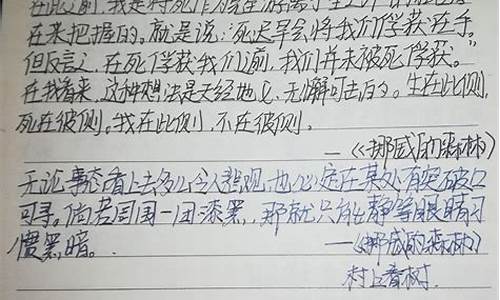 在此之前,我是将死作为完全游离于生之外的独立存
在来把握的。就是说:“死迟早会将我们俘获在手。
但反言之,在死俘获我们之前,我们并未被死俘获。”
在我看来,这种想法是天经地义、无懈可击的。生在此侧,
死在彼侧。我在此侧,不在彼侧。
——《挪威的森林》
无论事态看上去多么令人悲观,也必定在某处有突破口
可寻。倘若周围一团漆黑,那就只能静等眼睛习
惯黑暗。
——《挪威的森林》
村上春树